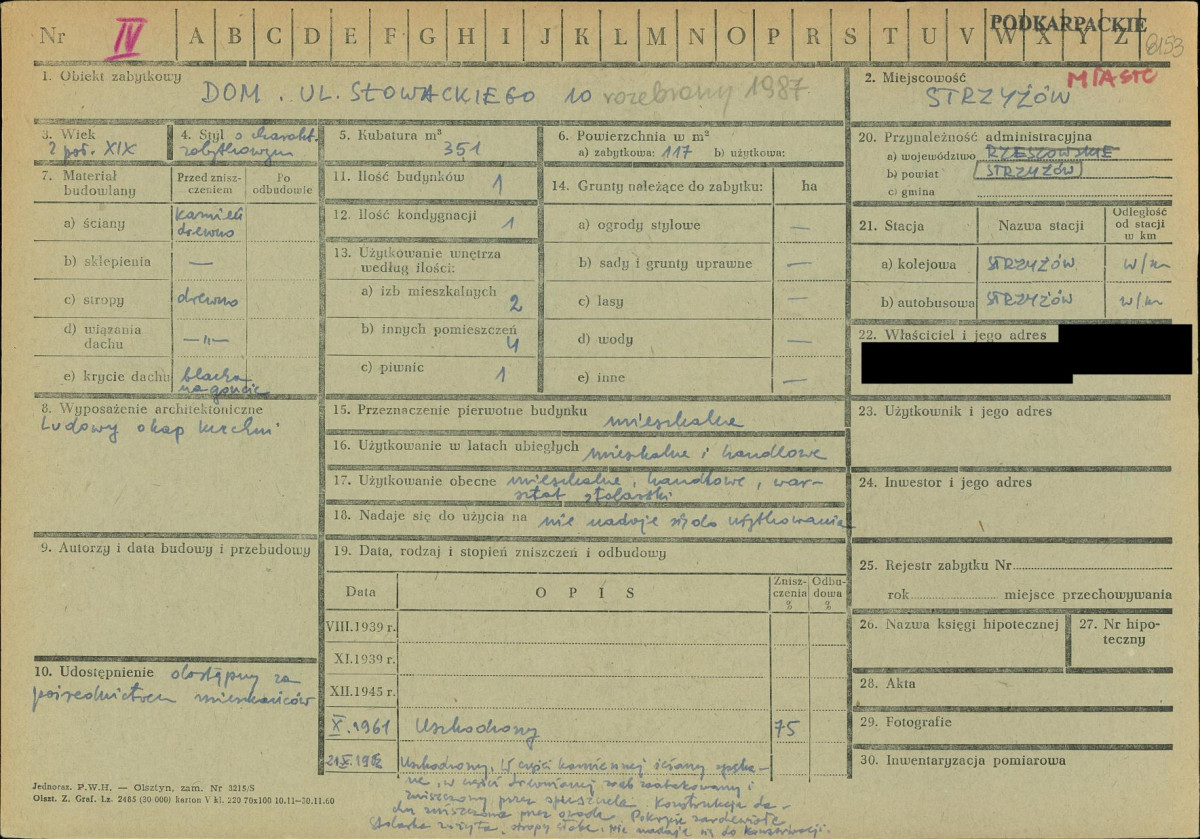 PODKARPACKIE
Nr IV A B C D E F G H I J K L M N O P R S T U V W X Y Z 8153
1. Obiekt zabytkowy
DOM. UL. SŁOWACKIEGO 10 rozebrany 1987
2. Miejscowość MIASTO
STRZYŻÓW
3. Wiek
2 poł. XIX
4. Styl o charakt.
zabytkowym
5. Kubatura m³
351
6. Powierzchnia w m²
a) zabytkowa: 117 b) użytkowa:
20. Przynależność administracyjna
a) województwo RZESZOWSKIE
b) powiat STRZYŻÓW
c) gmina
7. Materiał budowlany
Przed zniszczeniem
Po odbudowie
a) ściany kamień drewno
b) sklepienia —
c) stropy drewno
d) wiązania dachu —„—
e) krycie dachu blacha na goncie
11. Ilość budynków 1
12. Ilość kondygnacji 1
13. Użytkowanie wnętrza
według ilości:
a) izb mieszkalnych 2
b) innych pomieszczeń 4
c) piwnic 1
14. Grunty należące do zabytku: ha
a) ogrody stylowe —
b) sady i grunty uprawne —
c) lasy —
d) wody —
e) inne —
21. Stacja Nazwa stacji Odległość od stacji w km
a) kolejowa STRZYŻÓW w/m
b) autobusowa STRZYŻÓW w/m
22. Właściciel i jego adres
8. Wyposażenie architektoniczne
Ludowy okap kuchni
15. Przeznaczenie pierwotne budynku
mieszkalne
16. Użytkowanie w latach ubiegłych mieszkalne i handlowe
17. Użytkowanie obecne mieszkalne, handlowe, war-
sztat stolarski
18. Nadaje się do użycia na nie nadaje się do użytkowania
23. Użytkownik i jego adres
24. Inwestor i jego adres
9. Autorzy i data budowy i przebudowy
19. Data, rodzaj i stopień zniszczeń i odbudowy
Data OPIS Zniszczenia % Odbudowa %
VIII.1939 r.
XI.1939 r.
XII.1945 r.
X.1961 Uszkodzony 75
Uszkodzony. W części kamiennej ściany spęka-
ne, w części drewnianej zrąb zaatakowany i
zniszczony przez spuszczela. Konstrukcja da-
chu zniszczona przez owada. Pokrycie zardzewiałe.
Stolarka zużyta, stropy słabe. Nie nadaje się do konserwacji.
25. Rejestr zabytku Nr
rok miejsce przechowywania
26. Nazwa księgi hipotecznej
27. Nr hipoteczny
28. Akta
29. Fotografie
30. Inwentaryzacja pomiarowa
10. Udostępnienie dostępny za
pośrednictwem mieszkańców
Jednoraz. P.W.H. — Olsztyn, zam. Nr 3215/S
Olszt. Z. Graf. Lz. 2485 (30 000) karton V kl. 220 70x100 10.11—30.11.60